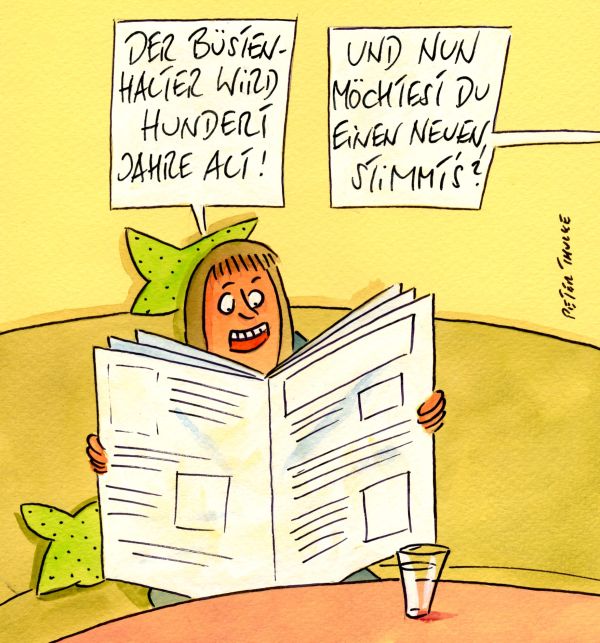 DER BÜSTEN-
HALTER WIRD
HUNDERT
JAHRE ALT!
UND NUN
MÖCHTEST DU
EINEN NEUEN,
STIMMT'S?
PETER THULKE